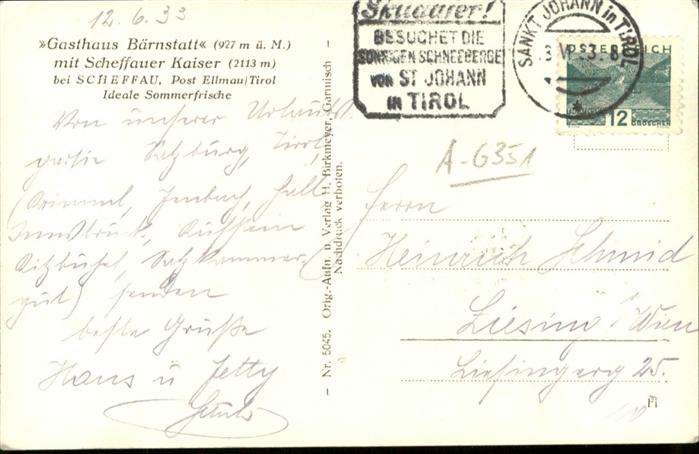 12.6.33
»Gasthaus Bärnstatt« (927 m ü. M.)
mit Scheffauer Kaiser (2113 m)
bei SCHEFFAU, Post Ellmau/Tirol
Ideale Sommerfrische
Von unserer Urlaubs
partie Salzburg, Tirol,
(Krimml, Jenbach, Hall
Innsbruck, Kufstein
Kitzbühel, Salzkammer
gut) senden
beste Grüße
Hans u Jetty
— Nr. 5045. Orig.-Aufn. u. Verlag H. Birkmeyer, Garmisch —
Nachdruck verboten.
Skifahrer!
BESUCHET DIE
SONNIGEN SCHNEEBERGE
von ST JOHANN
in TIROL
SANKT JOHANN in TIROL
ÖSTERREICH
12
GROSCHEN
A-6351
Herrn
Heinrich Schmid
Liesing b/Wien
Liesingerg 25.